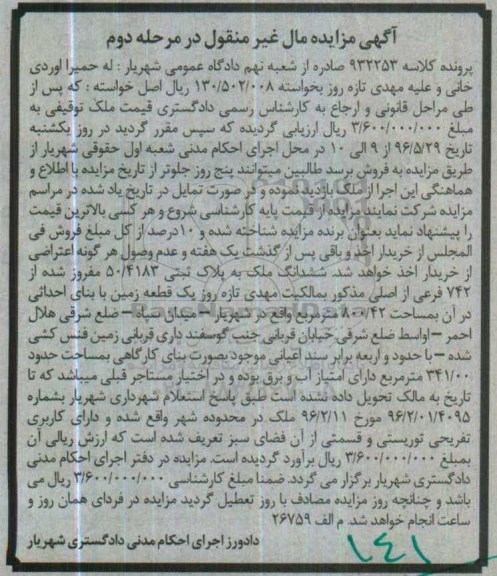 آگهی مزایده مال غیر منقول در مرحله دوم
پرونده کلاسه ۹۳۲۲۵۳ صادره از شعبه نهم دادگاه عمومی شهریار : له حمیرا اوردی
خانی و علیه مهدی تازه روز بخواسته ۱۳۰/۵۰۲/۰۰۸ ریال اصل خواسته : که پس از
طی مراحل قانونی و ارجاع به کارشناس رسمی دادگستری قیمت ملک توقیفی به
مبلغ ۳/۶۰۰/۰۰۰/۰۰۰ ریال ارزیابی گردیده که سپس مقرر گردید در روز یکشنبه
تاریخ ۹۶/۵/۲۹ از ۹ الی ۱۰ در محل اجرای احکام مدنی شعبه اول حقوقی شهریار از
طریق مزایده به فروش برسد طالبین میتوانند پنج روز جلوتر از تاریخ مزایده با اطلاع و
هماهنگی این اجرا از ملک بازدید نموده و در صورت تمایل در تاریخ یاد شده در مراسم
مزایده شرکت نمایند مزایده از قیمت پایه کارشناسی شروع و هر کسی بالاترین قیمت
را پیشنهاد نماید بعنوان برنده مزایده شناخته شده و ۱۰درصد از کل مبلغ فروش فی
المجلس از خریدار اخذ و باقی پس از گذشت یک هفته و عدم وصول هر گونه اعتراضی
از خریدار اخذ خواهد شد. ششدانگ ملک به پلاک ثبتی ۵۰/۴۱۸۳ مفروز شده از
۷۴۲ فرعی از اصلی مذکور بمالکیت مهدی تازه روز یک قطعه زمین با بنای احداثی
در آن بمساحت ۸۰۰/۴۲ مترمربع واقع در شهریار – میدان صیاد – ضلع شرقی هلال
احمر – اواسط ضلع شرقی خیابان قربانی جنب گوسفند داری قربانی زمین فنس کشی
شده – با حدود و اربعه برابر سند اعیانی موجود بصورت بنای کارگاهی بمساحت حدود
۳۴۱/۰۰ مترمربع دارای امتیاز آب و برق بوده و در اختیار مستاجر قبلی میباشد که تا
تاریخ به مالک تحویل داده نشده است طبق پاسخ استعلام شهرداری شهریار بشماره
۹۶/۲/۰۱/۴۰۹۵ مورخ ۹۶/۲/۱۱ ملک در محدوده شهر واقع شده و دارای کاربری
تفریحی توریستی و قسمتی از آن فضای سبز تعریف شده است که ارزش ریالی آن
بمبلغ ۳/۶۰۰/۰۰۰/۰۰۰ ریال برآورد گردیده است. مزایده در دفتر اجرای احکام مدنی
دادگستری شهریار برگزار می گردد. ضمنا مبلغ کارشناسی ۳/۶۰۰/۰۰۰/۰۰۰ ریال می
باشد و چنانچه روز مزایده مصادف با روز تعطیل گردید مزایده در فردای همان روز و
ساعت انجام خواهد شد. م الف ۲۶۷۵۹
دادورز اجرای احکام مدنی دادگستری شهریار
۱۴۱